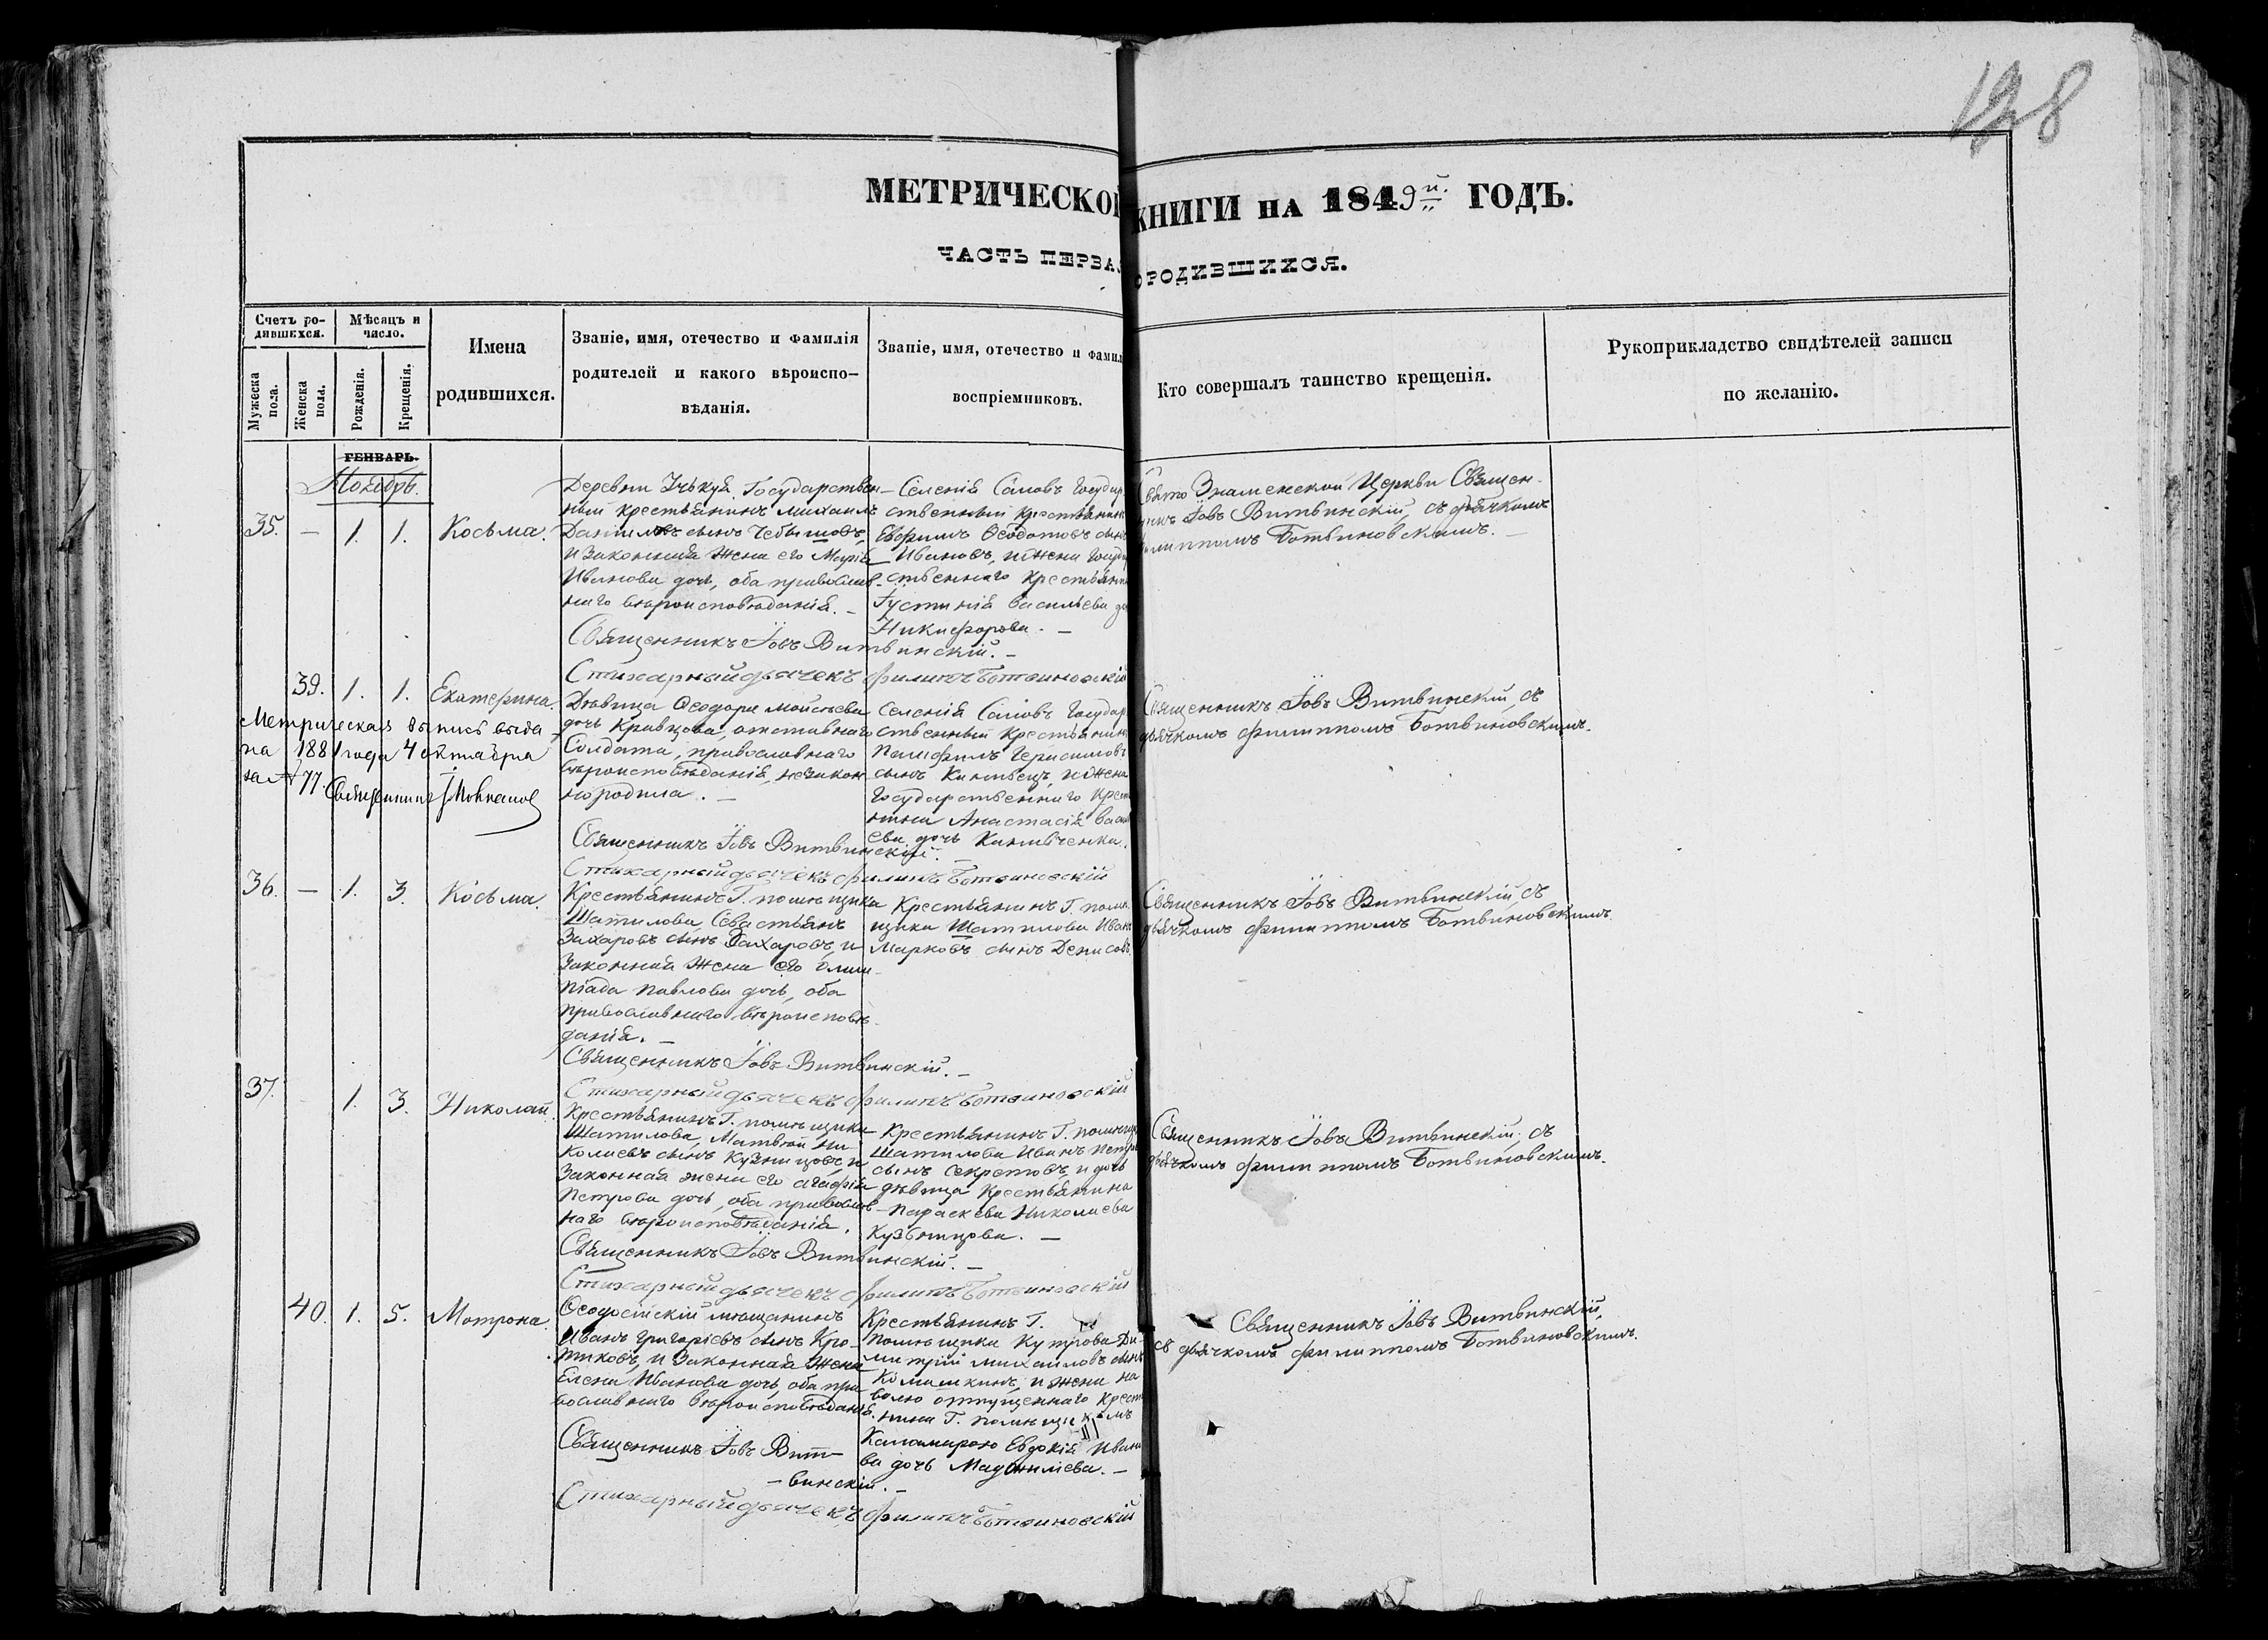 128
МЕТРИЧЕСКОЙ КНИГИ НА 1849й ГОДЪ.
ЧАСТЬ ПЕРВАЯ О РОДИВШИХСЯ.
Счетъ ро-
дившихся.
Мужеска пола.
Женска пола.
Мѣсяцъ и
число.
Рожденія.
Крещенія.
Имена
родившихся.
Званіе, имя, отечество и фамилія
родителей и какого вѣроиспо-
вѣданія.
Званіе, имя, отечество и фамил
воспріемниковъ.
Кто совершалъ таинство крещенія.
Рукоприкладство свидѣтелей записи
по желанію.
ГЕНВАРЬ.
Ноябрь.
35. — 1. 1. Косьма.
Деревни Государствен-
ный крестьянинъ Михаилъ
Даніиловъ сынъ Чебышовъ,
и законная жена его Марія
Иванова дочь, обa православ-
наго вѣроисповѣданія. —
Священникъ Іовъ Витвинскій. —
Стихарный дьячекъ Филипъ Ботвиновскій
Селенія Саловъ Государ
ственный крестьянинъ
Ефримъ Ѳеодотовъ сынъ
Ивановъ, и жена Госуда
ственнаго крестьянин
Іустинія Васильева до
Никифорова. —
Свято Знаменской Церкви Священ-
никъ Іовъ Витвинскій, съ дьячкомъ
Филиппомъ Ботвиновскимъ. —
39. 1. 1. Екатерина.
Дѣвица Ѳеодора Моисѣева
дочь Кравцова, отставнаго
Солдата, православнаго
вѣроисповѣданія, незакон
но родила. —
Священникъ Іовъ Витвинскій. —
Стихарный дьячекъ Филипъ Ботвиновскій
Селенія Саловъ Государ
ственный крестьянинъ
Памфилъ Герасимовъ
сынъ Киятвецъ, и жена
Государственнаго крест
янина Анастасія Васил
ева дочь Киятвченка.
Священникъ Іовъ Витвинскій, съ
дьячкомъ Филиппомъ Ботвиновскимъ.
Метрическая выпись выда
на 1881 года 4 октября
за № 77. Священникъ
36. — 1. 3. Косьма.
Крестьянинъ Г. помѣщика
Шатилова, Севастьянъ
Захаровъ сынъ Захаровъ, и
Законная жена его Олим-
піада Павлова дочь, оба
православнаго вѣроисповѣ-
данія. —
Священникъ Іовъ Витвинскій. —
Стихарный дьячекъ Филипъ Ботвиновскій
Крестьянинъ Г. помѣ
щика Шатилова Иванъ
Марковъ сынъ Денисовъ.
Священникъ Іовъ Витвинскій, съ
дьячкомъ Филиппомъ Ботвиновскимъ.
37. 1. 3. Николай.
Крестьянинъ Г. помѣщика
Шатилова, Матвѣй Ни-
колаевъ сынъ Кузницовъ и
Законная жена его Агафія
Петрова дочь, оба православ-
наго вѣроисповѣданія.
Священникъ Іовъ Витвинскій. —
Стихарный дьячекъ Филипъ Ботвиновскій
Крестьянинъ Г. помѣщи
Шатилова Иванъ Петро
сынъ Секретовъ, и дочь
дѣвица Крестьянина
Параскева Николаева
Кузницова. —
Священникъ Іовъ Витвинскій, съ
дьячкомъ Филиппомъ Ботвиновскимъ.
40. 1. 5. Матрона.
Ѳеодосійскій мѣщанинъ
Иванъ Григоріевъ сынъ Кро-
тиковъ, и Законная жена
Елена Иванова дочь, оба пра
вославнаго вѣроисповѣданія.
Священникъ Іовъ Вит-
-винскій. —
Стихарный дьячекъ Филипъ Ботвиновскій
Крестьянинъ Г.
помѣщика Кутрова Ди-
митрій Михаиловъ сынъ
Комашкинъ, и жена на
волю отпущеннаго крест
янина Г. помѣщикомъ
Каламарою Евдокія Ивано
ва дочь —
Священникъ Іовъ Витвинскій,
съ дьячкомъ Филиппомъ Ботвиновскимъ.